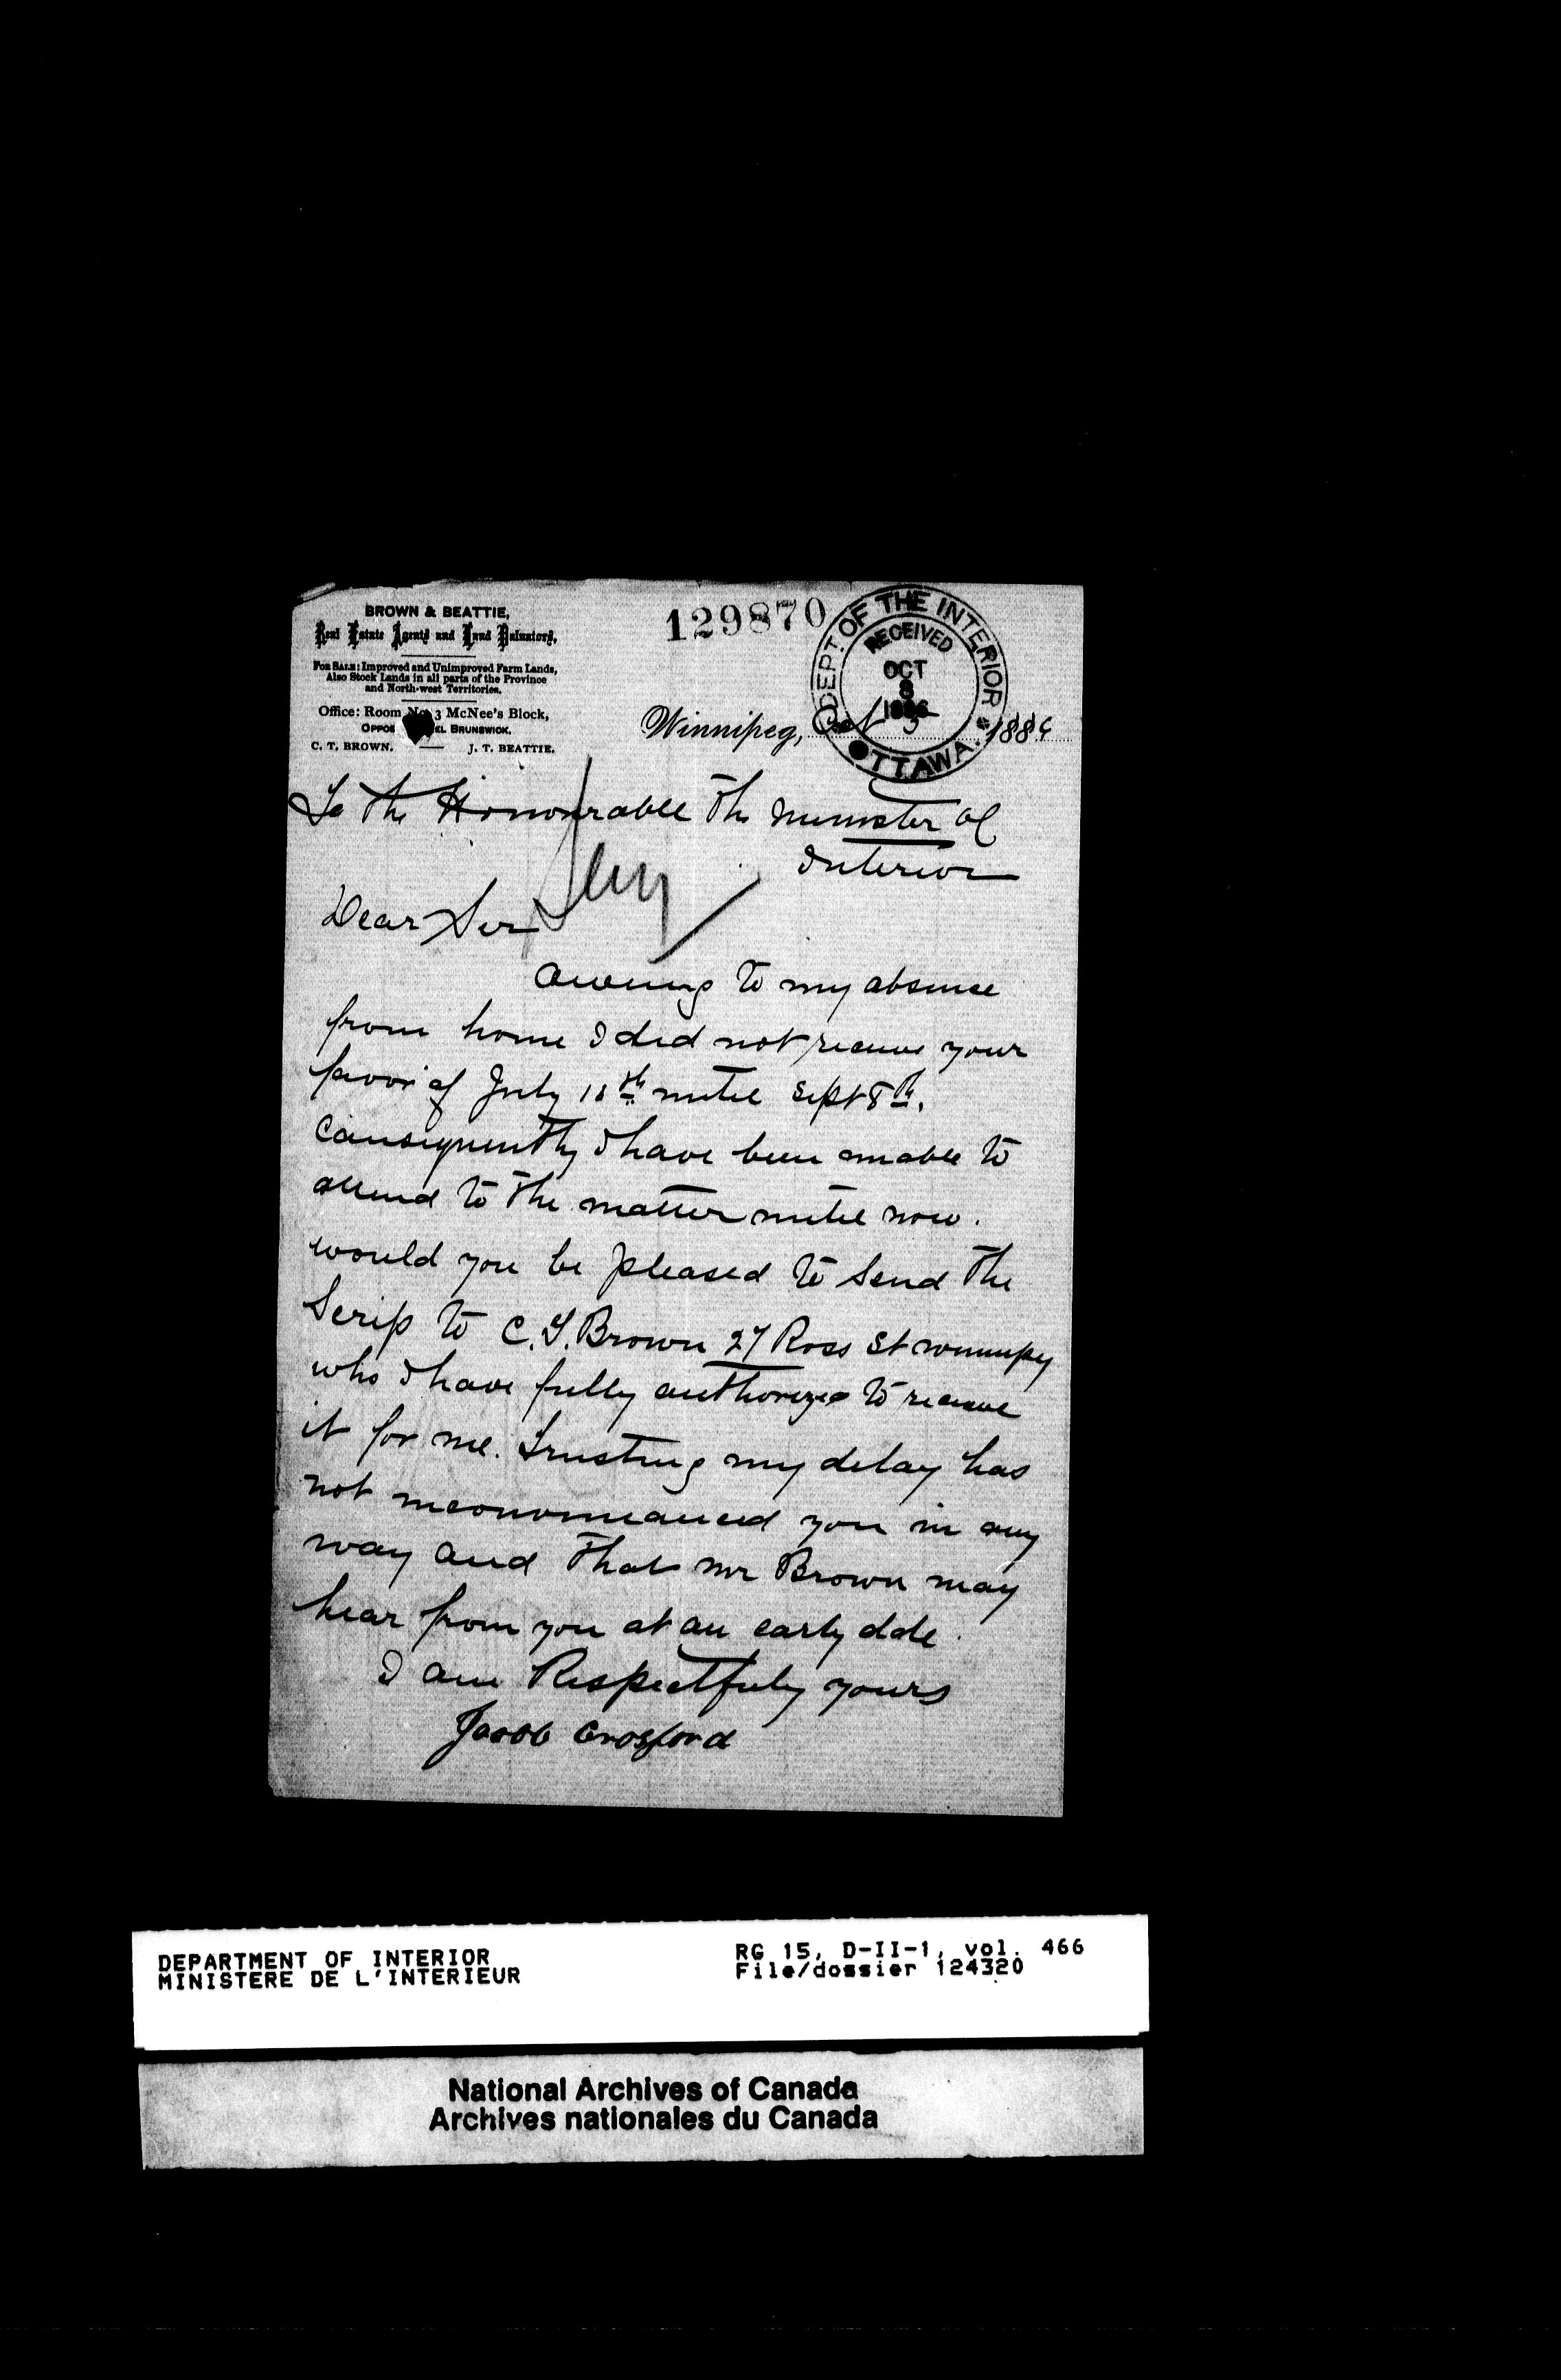 BROWN & BEATTIE,
Real Estate Agents and Land Valuators,
FOR SALE: Improved and Unimproved Farm Lands,
Also Stock Lands in all parts of the Province
and North-west Territories.
Office: Room No. 3 McNee's Block,
OPPOS EL BRUNSWICK.
C. T. BROWN. J. T. BEATTIE.
129870
DEPT. OF THE INTERIOR
RECEIVED
OCT
8
1886
OTTAWA.
Winnipeg, Oct 5 1886
To the Honourable The Minister of
Interior
Dear Sir
Owing to my absence
from home I did not receive your
favor of July 18th until Sept 8th.
Consequently I have been unable to
attend to the matter until now.
would you be pleased to send the
Scrip to C. T. Brown 27 Ross St Winnipeg
who I have fully authorized to receive
it for me. Trusting my delay has
not inconvenianced you in any
way and that mr Brown may
hear from you at an early date.
I am Respectfuly yours
Jacob
DEPARTMENT OF INTERIOR
MINISTERE DE L'INTERIEUR
RG 15, D-II-1, vol. 466
File/dossier 124320
National Archives of Canada
Archives nationales du Canada